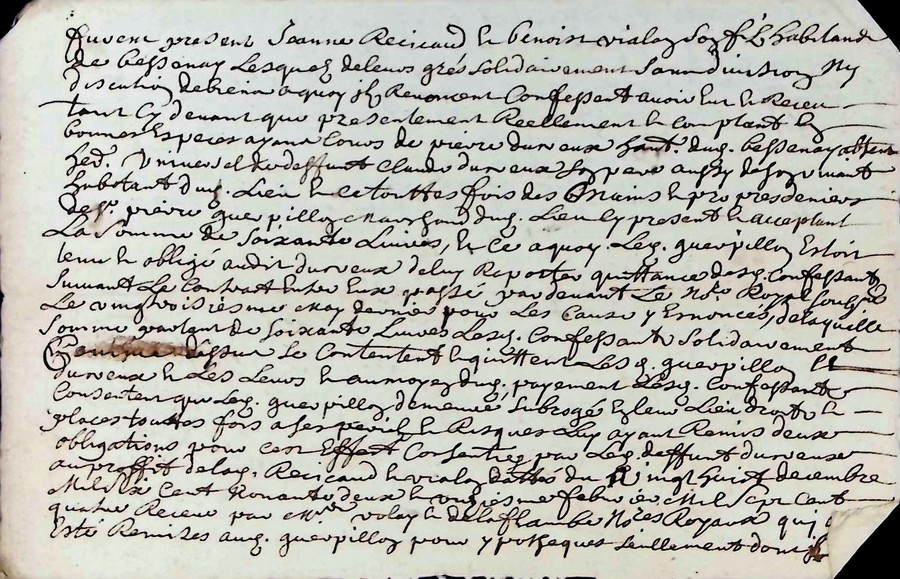 furent present Jeanne Recicaud et benoist vialoz son fé. habitands
de bessenay Lesquelz deleurs grés solidairement sans division Ny
discution debiens a quoy jlz Renoncent Confessent avoir Eut et Receu
tant Cy devant que presentement Reellement et Comptant En
bonnes Especes ayant Cours de pierre durieux habt. dud. bessenay absent
hed. universel de deffunt Claude durieux son pere aussy deson vivant
habitant dud. Lieu et ce touttes fois des Mains et propres deniers
de sr. pierre guerpilloz Marchand dud. Lieu Cy present et acceptant
La Somme de Soixante Livres, Et Ce a quoy Led. guerpilloz Estoit
tenu et obligé audit durieux deluy Raporter quittance desd. Confessants
Suivant Le Contrat Entre Eux passé pardevant Le Nore. Royal soubzné
Le vingtroisiesme may dernier pour Les Cause y Enoncés, delaquelle
Somme partant de soixante Livres Lesd. Confessants Solidairement
Comme dessus se Contentent et quittent Lesd. guerpilloz Et
durieux et Les Leurs et au moyen dud. payement Lesd. Confessants
Consentent que Led. guerpilloz demeure Subrogé En leur Lieu droit et
places touttes fois a ses perils et Risques Luy ayant Remis deux
obligations pour cest Effect Consenties par Led. deffunt durieux
au proffit delad. Recicaud et vialoz dattés du vingt huict decembre
Mil six Cent Nonante deux et vingtiesme febvrier Mil sept cent
quatre Receu par Mres. volay et delaflambe Nores Royaux qui
Esté Remises aud. guerpilloz pour ypotheques seullement dont